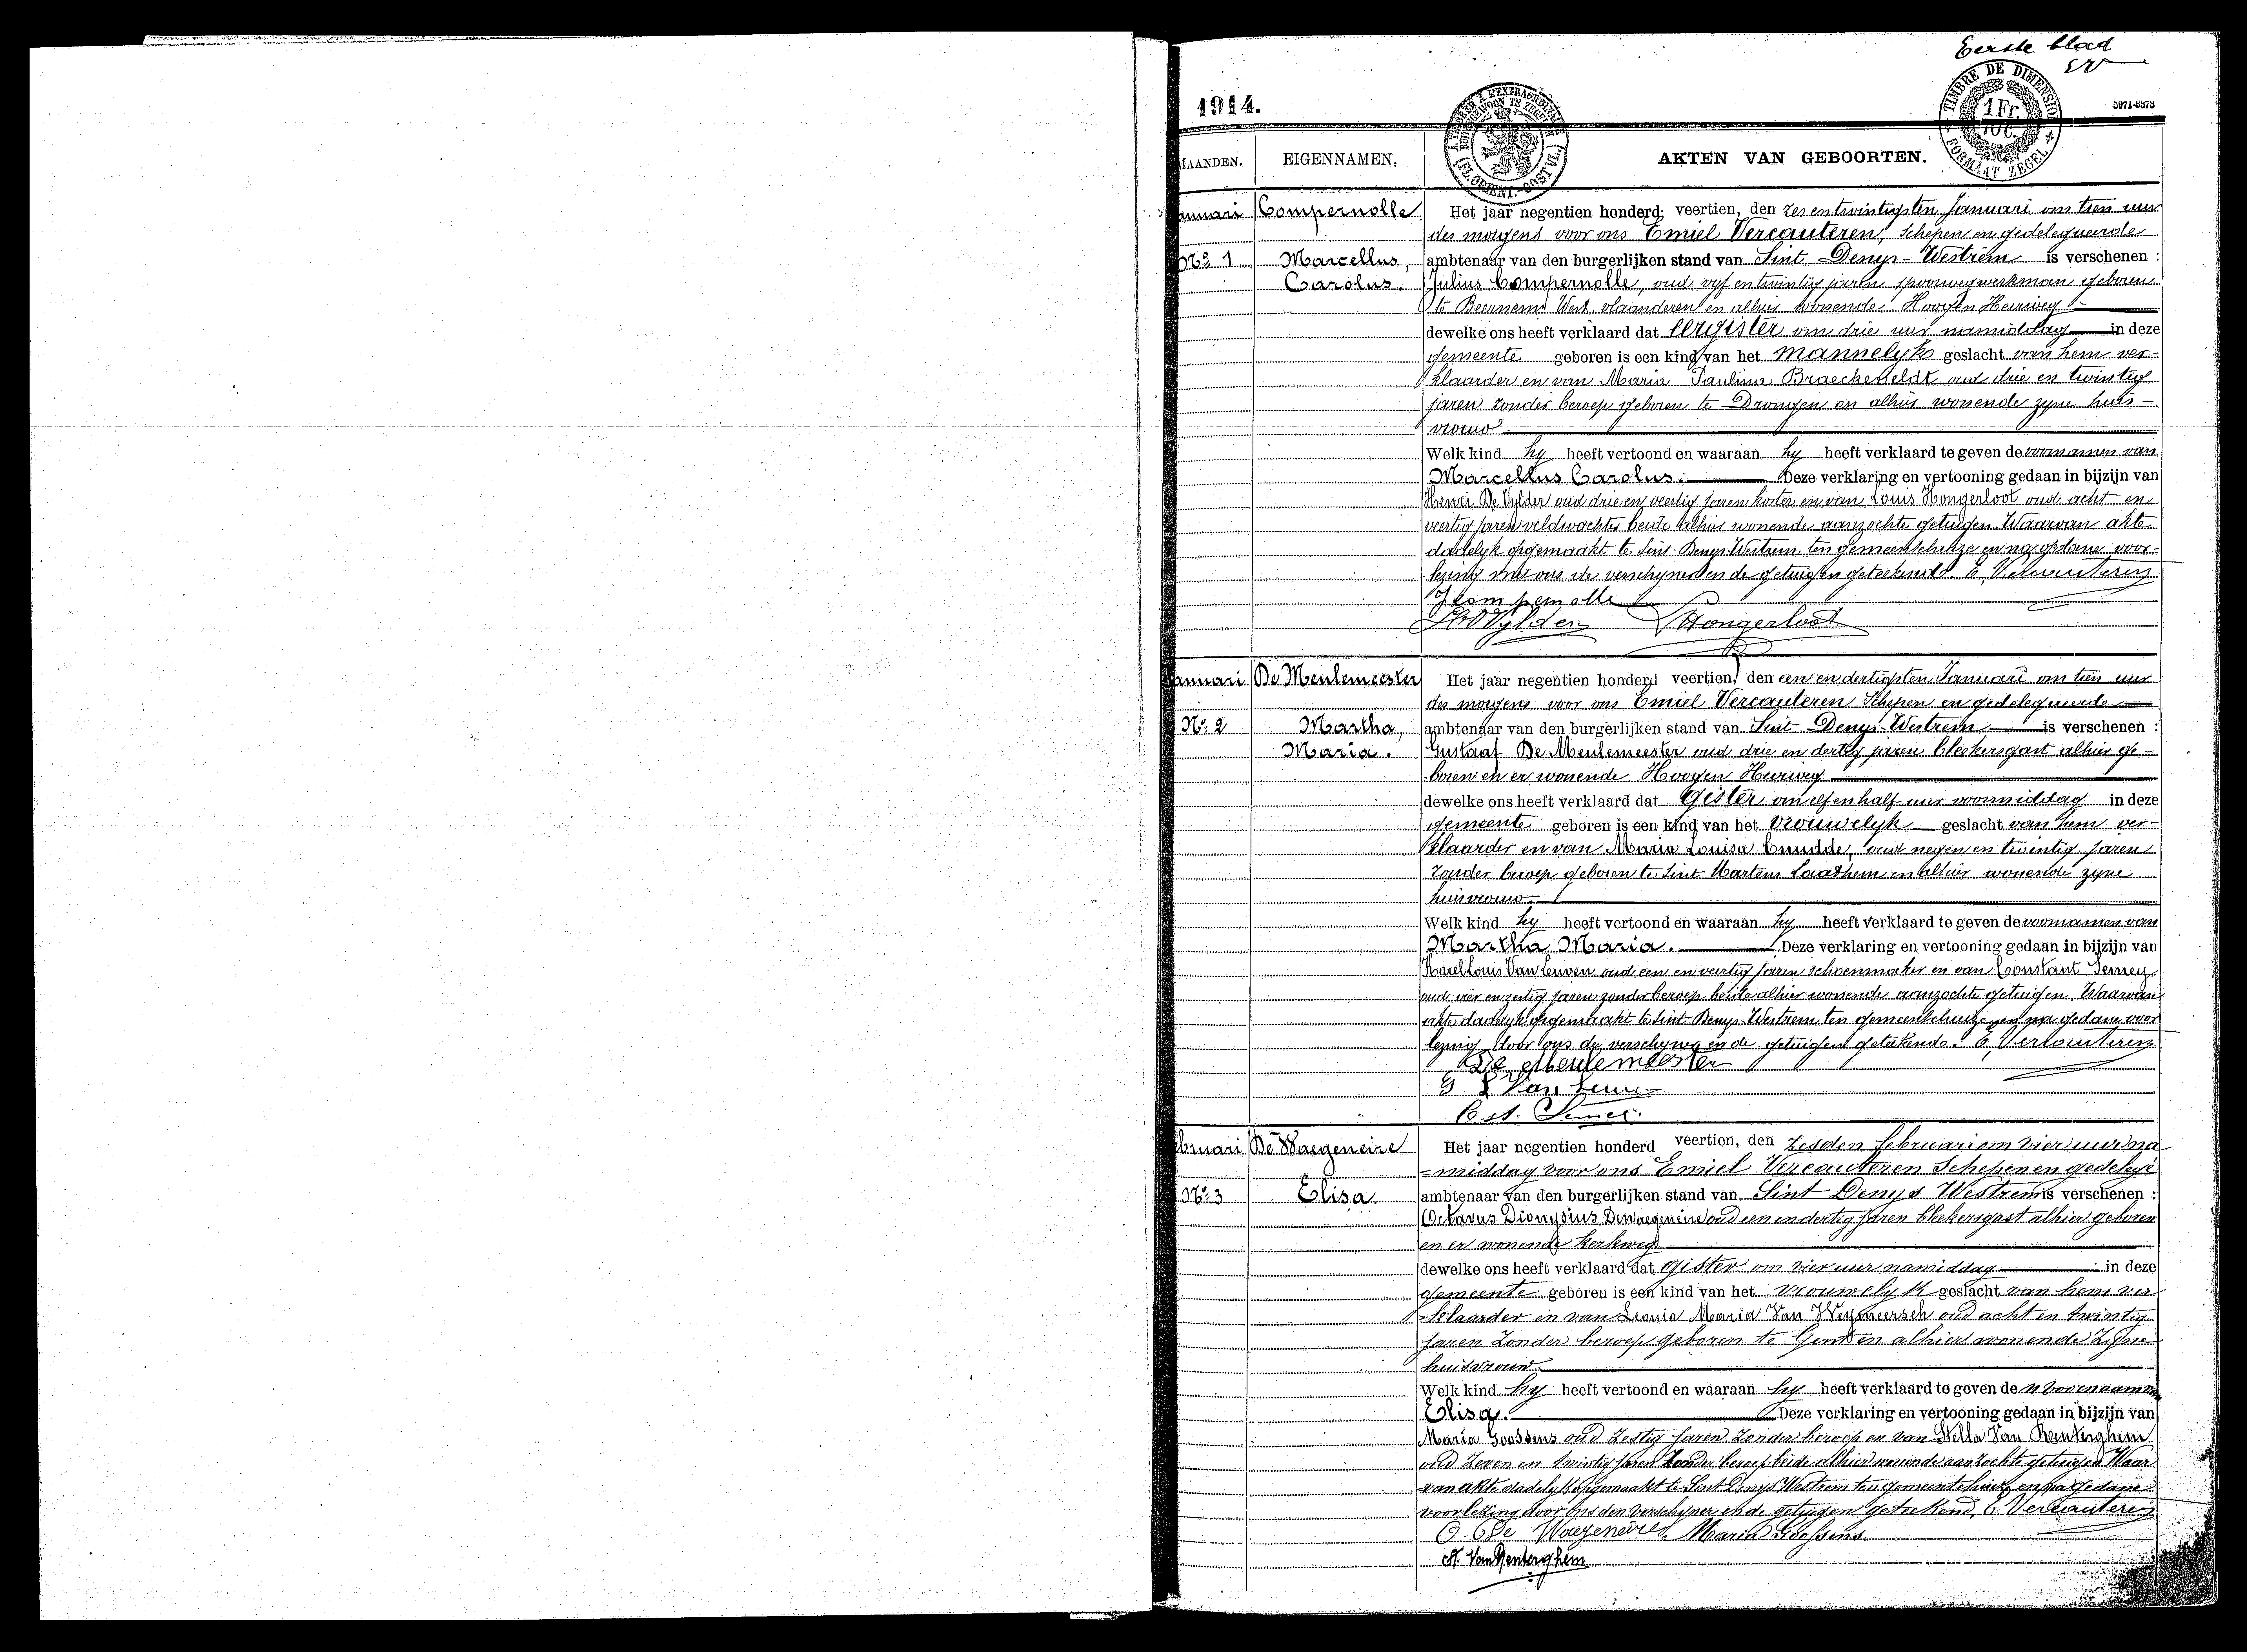 Eerste blad
EV
TIMBRE DE DIMENSION
1 Fr.
10 C.
FORMAAT ZEGEL
1914.
5971-3373
A TIMBRER A L'EXTRAORDINAIRE
BUITENGEWOON TE ZEGELEN
(FL. ORIENT.-OOST VL.)
MAANDEN. EIGENNAMEN. AKTEN VAN GEBOORTEN.
anuari Compernolle Het jaar negentien honderd veertien, den zes en twintigsten Januari om tien uur
des morgens voor ons Emiel Vercauteren, Schepen en gedelegueerde
No. 1 Marcellus, ambtenaar van den burgerlijken stand van Sint Denys-Westrem is verschenen :
Carolus. Julius Compernolle, oud vyf en twintig jaren spoorwegwerkman geboren
te Beernem West vlaanderen en alhier wonende Hoogen Heirweg
dewelke ons heeft verklaard dat eergister om drie uur namiddag in deze
gemeente geboren is een kind van het mannelyk geslacht van hem ver-
klaarder en van Maria Paulina Braeckeveldt oud drie en twintig
jaren zonder beroep geboren te Drongen en alhier wonende zyne huis-
vrouw
Welk kind hy heeft vertoond en waaraan hy heeft verklaard te geven de voornamen van
Marcellus Carolus. Deze verklaring en vertooning gedaan in bijzijn van
Henri De Vylder oud drie en veertig jaren koster en van Louis Hongerloot oud acht en
veertig jaren veldwachter beide alhier wonende aanzochte getuigen. Waarvan akte
dadelyk opgemaakt te Sint-Denys-Westrem ten gemeentehuize en na gedane voor-
lezing met ons de verschyner en de getuigen geteekend. E. Vercauteren
J Compernolle
H De Vylder L Hongerloot
anuari De Meulemeester Het jaar negentien honderd veertien, den een en dertigsten Januari om tien uur
des morgens voor ons Emiel Vercauteren Schepen en gedelegueerde
No. 2 Martha, ambtenaar van den burgerlijken stand van Sint Denys-Westrem is verschenen :
Maria. Gustaaf De Meulemeester oud drie en dertig jaren bleekersgast alhier ge-
boren en er wonende Hoogen Heirweg
dewelke ons heeft verklaard dat gister om elf en half uur voormiddag in deze
gemeente geboren is een kind van het vrouwelyk geslacht van hem ver-
klaarder en van Maria Louisa Cnudde, oud negen en twintig jaren
zonder beroep geboren te Sint Martens Laathem en alhier wonende zyne
huisvrouw
Welk kind hy heeft vertoond en waaraan hy heeft verklaard te geven de voornamen van
Martha Maria. Deze verklaring en vertooning gedaan in bijzijn van
Karel Louis Van Leuven oud een en veertig jaren schoenmaker en van Constant Semey
oud vier en zestig jaren zonder beroep beide alhier wonende aanzochte getuigen. Waarvan
akte dadelyk opgemaakt te Sint Denys-Westrem ten gemeentehuize en na gedane voor
lezing door ons de verschyner en de getuigen geteekend. E. Vercauteren
De Meulemeester
Van Leuven
Cst. Semey.
ebruari De Waegeneire Het jaar negentien honderd veertien, den zesden februari om vier uur na
-middag voor ons Emiel Vercauteren Schepen en gedelege
No. 3 Elisa. ambtenaar van den burgerlijken stand van Sint Denys Westrem is verschenen :
Octavus Dionysius Dewaegeneire oud een en dertig jaren bleekersgast alhier geboren
en er wonende Kerkweg
dewelke ons heeft verklaard dat gister om vier uur namiddag in deze
gemeente geboren is een kind van het vrouwelyk geslacht van hem ver
-klaarder en van Leonia Maria Van Weymeersch oud acht en twintig
jaren zonder beroep geboren te Gent en alhier wonende zyne
huisvrouw
Welk kind hy heeft vertoond en waaraan hy heeft verklaard te geven de n voornaam van
Elisa. Deze verklaring en vertooning gedaan in bijzijn van
Maria Goossens oud zestig jaren zonder beroep en van Stella Van Renterghem
oud zeven en twintig jaren zonder beroep beide alhier wonende aanzochte getuigen Waar
van akte dadelyk opgemaakt te Sint Denys Westrem ten gemeentehuize en na gedane
voorlezing door ons den verschyner en de getuigen geteekend. E Vercauteren
O. De Waegeneire Maria Goossens
St. Van Renterghem